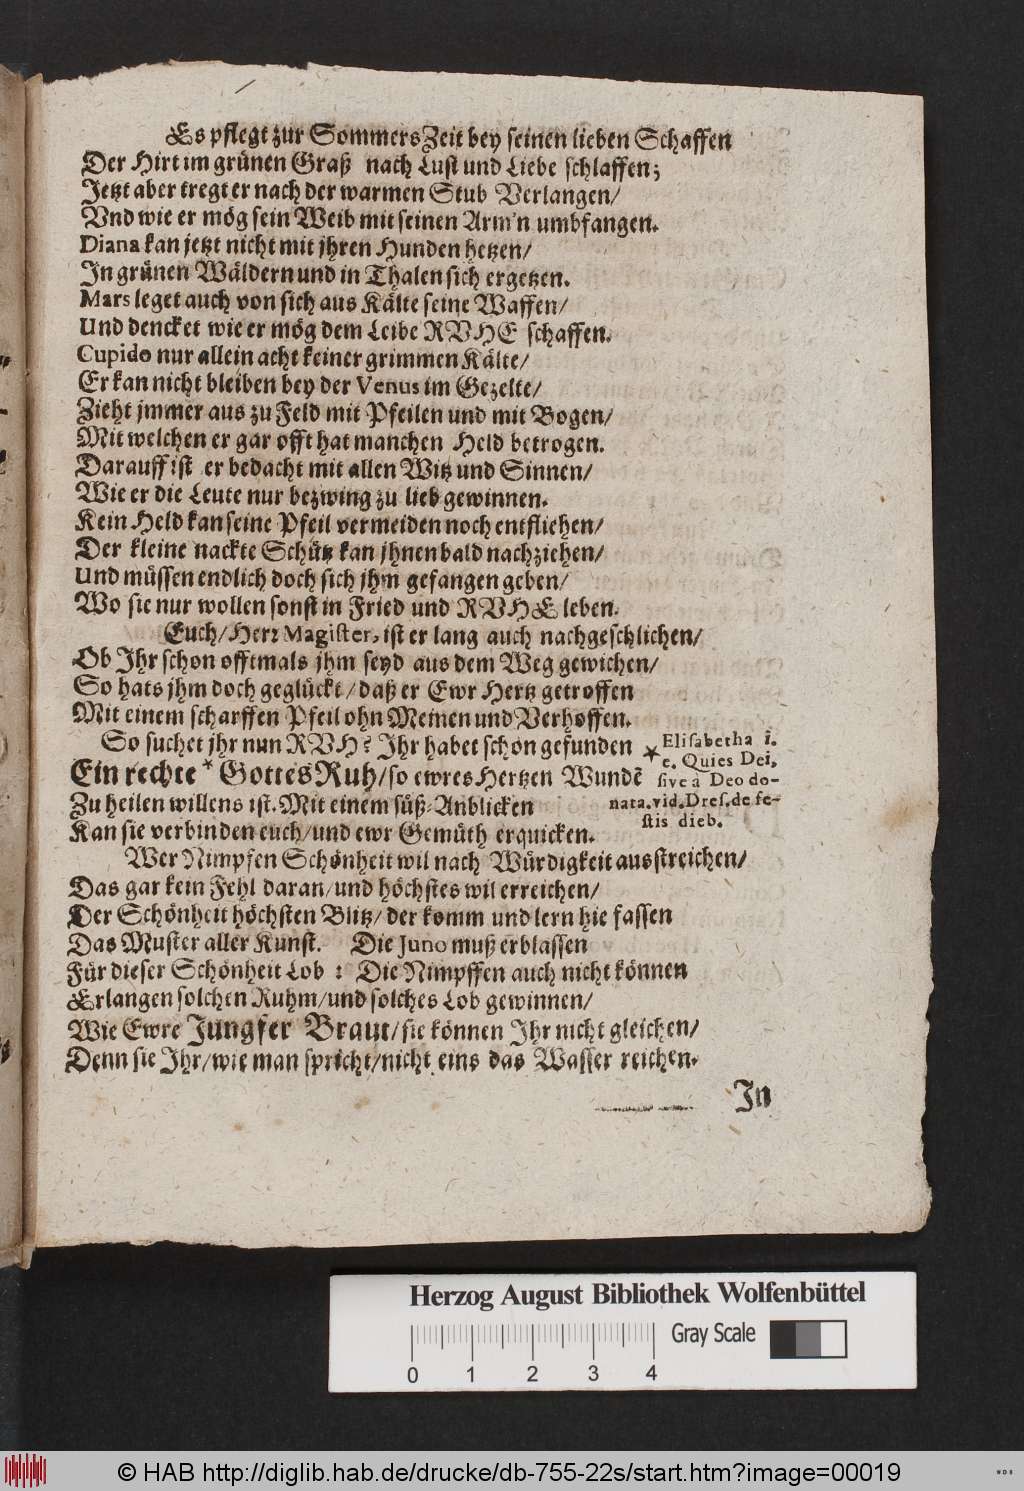 Es pflegt zur SommersZeit bey seinen lieben Schaffen
Der Hirt im grünen Graß nach Lust und Liebe schlaffen;
Jetzt aber tregt er nach der warmen Stub Verlangen/
Vnd wie er mög sein Weib mit seinen Arm'n umbfangen.
Diana kan jetzt nicht mit jhren Hunden hetzen/
In grünen Wäldern und in Thalen sich ergetzen.
Mars leget auch von sich aus Kälte seine Waffen/
Und dencket wie er mög dem Leibe RVHE schaffen.
Cupido nur allein acht keiner grimmen Kälte/
Er kan nicht bleiben bey der Venus im Gezelte/
Zieht jmmer aus zu Feld mit Pfeilen und mit Bogen/
Mit welchen er gar offt hat manchen Held betrogen.
Darauff ist er bedacht mit allen Witz und Sinnen/
Wie er die Leute nur bezwing zu lieb gewinnen.
Kein Held kan seine Pfeil vermeiden noch entfliehen/
Der kleine nackte Schütz kan jhnen bald nachziehen/
Und müssen endlich doch sich jhm gefangen geben/
Wo sie nur wollen sonst in Fried und RVHE leben.
Euch/ Herr Magister, ist er lang auch nachgeschlichen/
Ob Ihr schon offtmals jhm seyd aus dem Weg gewichen/
So hats jhm doch geglückt/ daß er Ewr Hertz getroffen
Mit einem scharffen Pfeil ohn Meinen und Verhoffen.
So suchet jhr nun RVH? Ihr habet schon gefunden
Ein rechte * Gottes Ruh/ so ewres Hertzen Wundē
Zu heilen willens ist. Mit einem süß-Anblicken
Kan sie verbinden euch/ und ewr Gemüth erquicken.
* Elisabetha i.
e. Quies Dei,
sive à Deo do-
nata. vid. Dres. de fe-
stis dieb.
Wer Nimpfen Schönheit wil nach Würdigkeit ausstreichen/
Das gar kein Fehl daran/ und höchstes wil erreichen/
Der Schönheit höchsten Blitz/ der komm und lern hie fassen
Das Muster aller Kunst. Die Juno muß erblassen
Für dieser Schönheit Lob: Die Nimpffen auch nicht können
Erlangen solchen Ruhm/ und solches Lob gewinnen/
Wie Ewre Jungfer Braut/ sie können Ihr nicht gleichen/
Denn sie Ihr/ wie man spricht/ nicht eins das Wasser reichen.
In
Herzog August Bibliothek Wolfenbüttel
Gray Scale
0 1 2 3 4
© HAB http://diglib.hab.de/drucke/db-755-22s/start.htm?image=00019
WDB